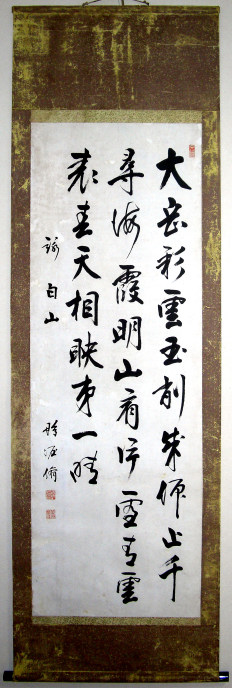 大岳彩雲玉削成仰止千
尋海霞明山肩片雪青雲
表春天相映第一晴
詠白山